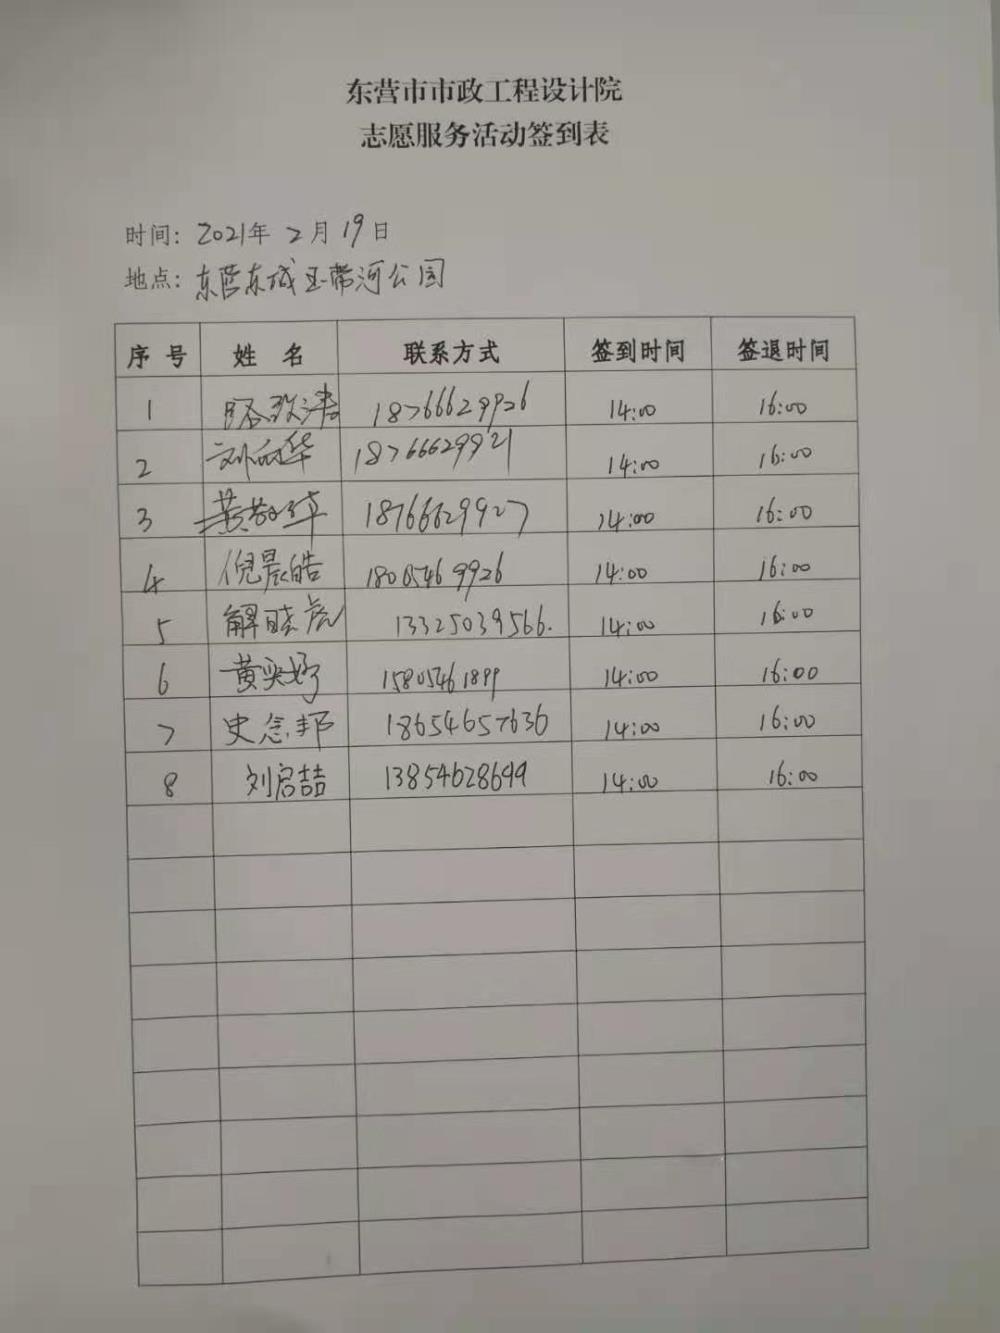 东营市市政工程设计院
志愿服务活动签到表
时间: 2021年 2月 19日
地点: 东营东城玉带河公园
序号 姓名 联系方式 签到时间 签退时间
1 18766629926 14:00 16:00
2 刘 华 18766629921 14:00 16:00
3 黄 华 18766629927 14:00 16:00
4 倪晨皓 18065469926 14:00 16:00
5 解晓虎 13325039566. 14:00 16:00
6 黄奕好 15805461899 14:00 16:00
7 史念邦 18654657636 14:00 16:00
8 刘启喆 13854628699 14:00 16:00